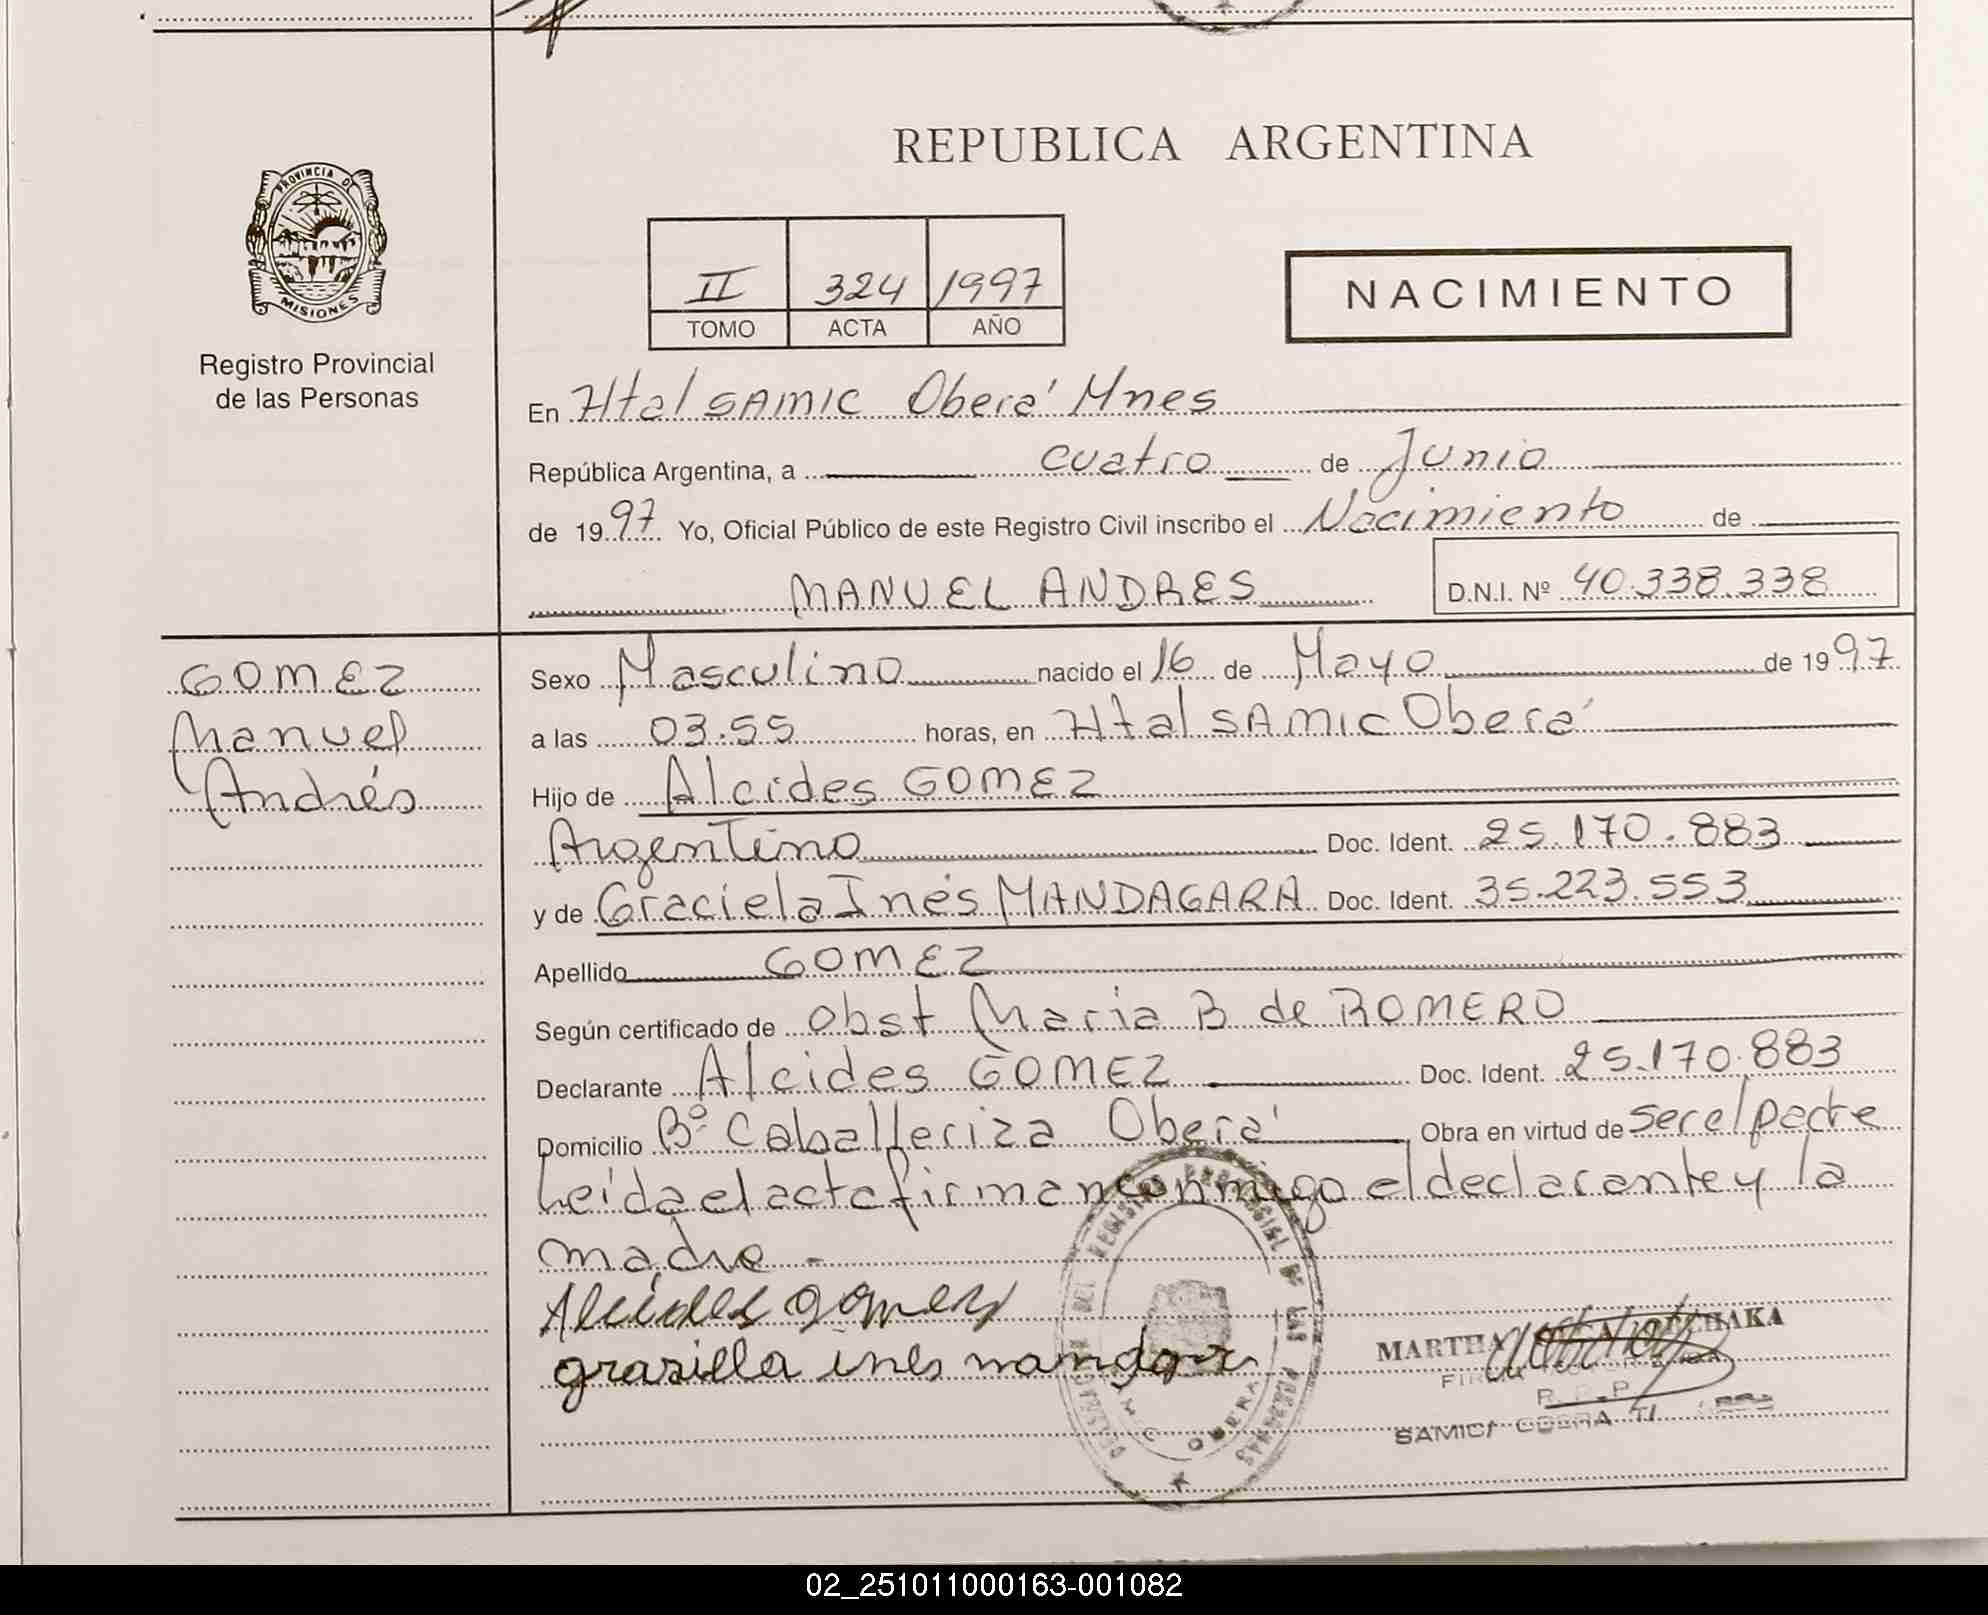 REPUBLICA ARGENTINA
PROVINCIA DE
MISIONES
Registro Provincial
de las Personas
II 324 1997
TOMO ACTA AÑO
NACIMIENTO
En Htal SAMIC Oberá Mnes
República Argentina, a cuatro de Junio
de 1997 Yo, Oficial Público de este Registro Civil inscribo el Nacimiento de
MANUEL ANDRES D.N.I. Nº 40.338.338
GOMEZ
Manuel
Andrés
Sexo Masculino nacido el 16 de Mayo de 1997
a las 03.55 horas, en Htal SAMIC Oberá
Hijo de Alcides GOMEZ
Argentino Doc. Ident. 25.170.883
y de Graciela Inés MANDAGARA Doc. Ident. 35.223.553
Apellido GOMEZ
Según certificado de obst Maria B de ROMERO
Declarante Alcides GOMEZ Doc. Ident. 25.170.883
Domicilio Bº Caballeriza Oberá Obra en virtud de ser el padre
Leida el acta firman conmigo el declarante y la
madre -
Alcides gomez
grasiela ines
MARTHA
SAMIC
OBERA
02_251011000163-001082